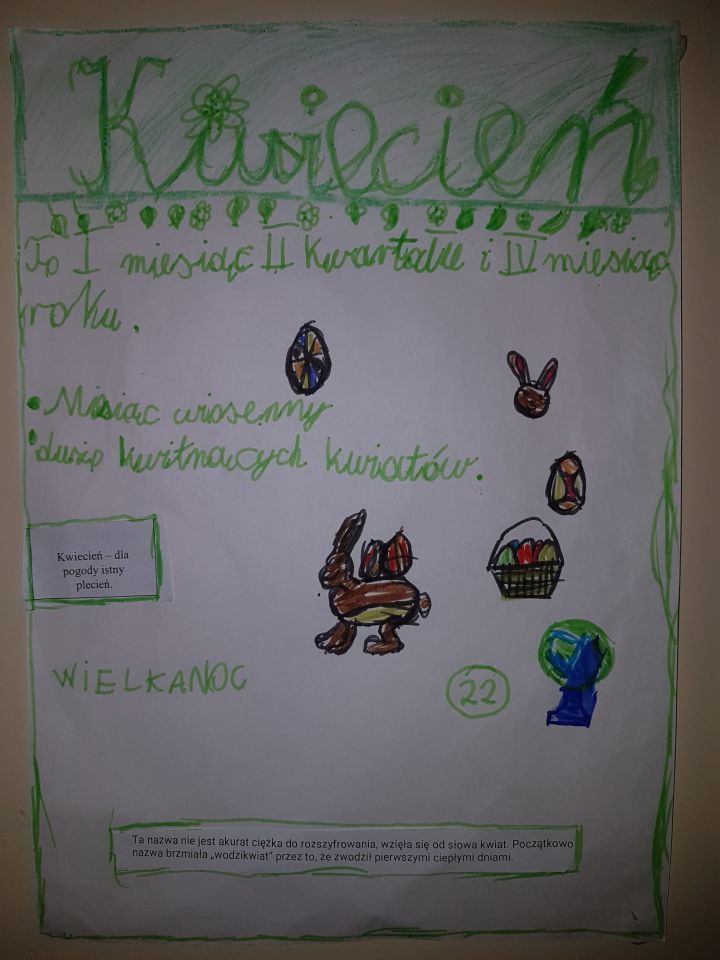 Kwiecień
To I miesiąc II kwartału i IV miesiąc
roku.
• Misiąc wiosenny
• dużo kwitnących kwiatów.
Kwiecień – dla
pogody istny
plecień.
WiELKANOC
22
Ta nazwa nie jest akurat ciężka do rozszyfrowania, wzięła się od słowa kwiat. Początkowo
nazwa brzmiała „wodzikwiat” przez to, że zwodził pierwszymi ciepłymi dniami.